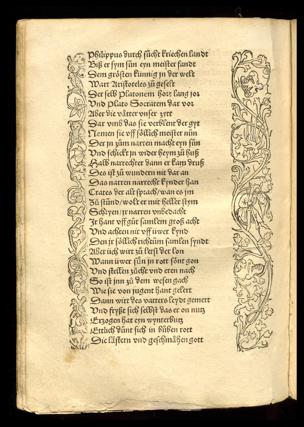 Philippus durch sůcht kriechen landt
Biß er sym sůn eyn meister fandt
Dem grösten künnig jn der welt
Wart Aristoteles zů geselt
Der selb Platonem hort lang jor
Und Plato Socratem dar vor
Aber die vätter unser zyt
Dar umb das sie verblent der gyt
Nemen sie uff söllich meister nůn
Der jn zům narren macht eyn sůn
Und schickt jn wider heym zů huß
Halb narrechter dann er kam druß
Des ist zů wundern nit dar an
Das narren narrecht kynder han
Crates der alt sprach / wan es jm
Zů stünd / wolt er mit heller stym
Schryen / jr narren unbedacht
Jr hant uff gůt samlen groß acht
Und achten nit uff üwer kynd
Den jr söllich richtům samlen syndt
Aber üch wirt zů letst der lon
Wann üwer sün jn rott sönt gon
Und stellen zůcht und eren nach
So ist jnn zů dem wesen gach
Wie sie von jugent hant gelert
Dann wirt des vatters leydt gemert
Und frißt sich selbst das er on nutz
Erzogen hat eyn wynterbutz
Ettlich důnt sich jn bůben rott
Die lästern und geschmähen gott